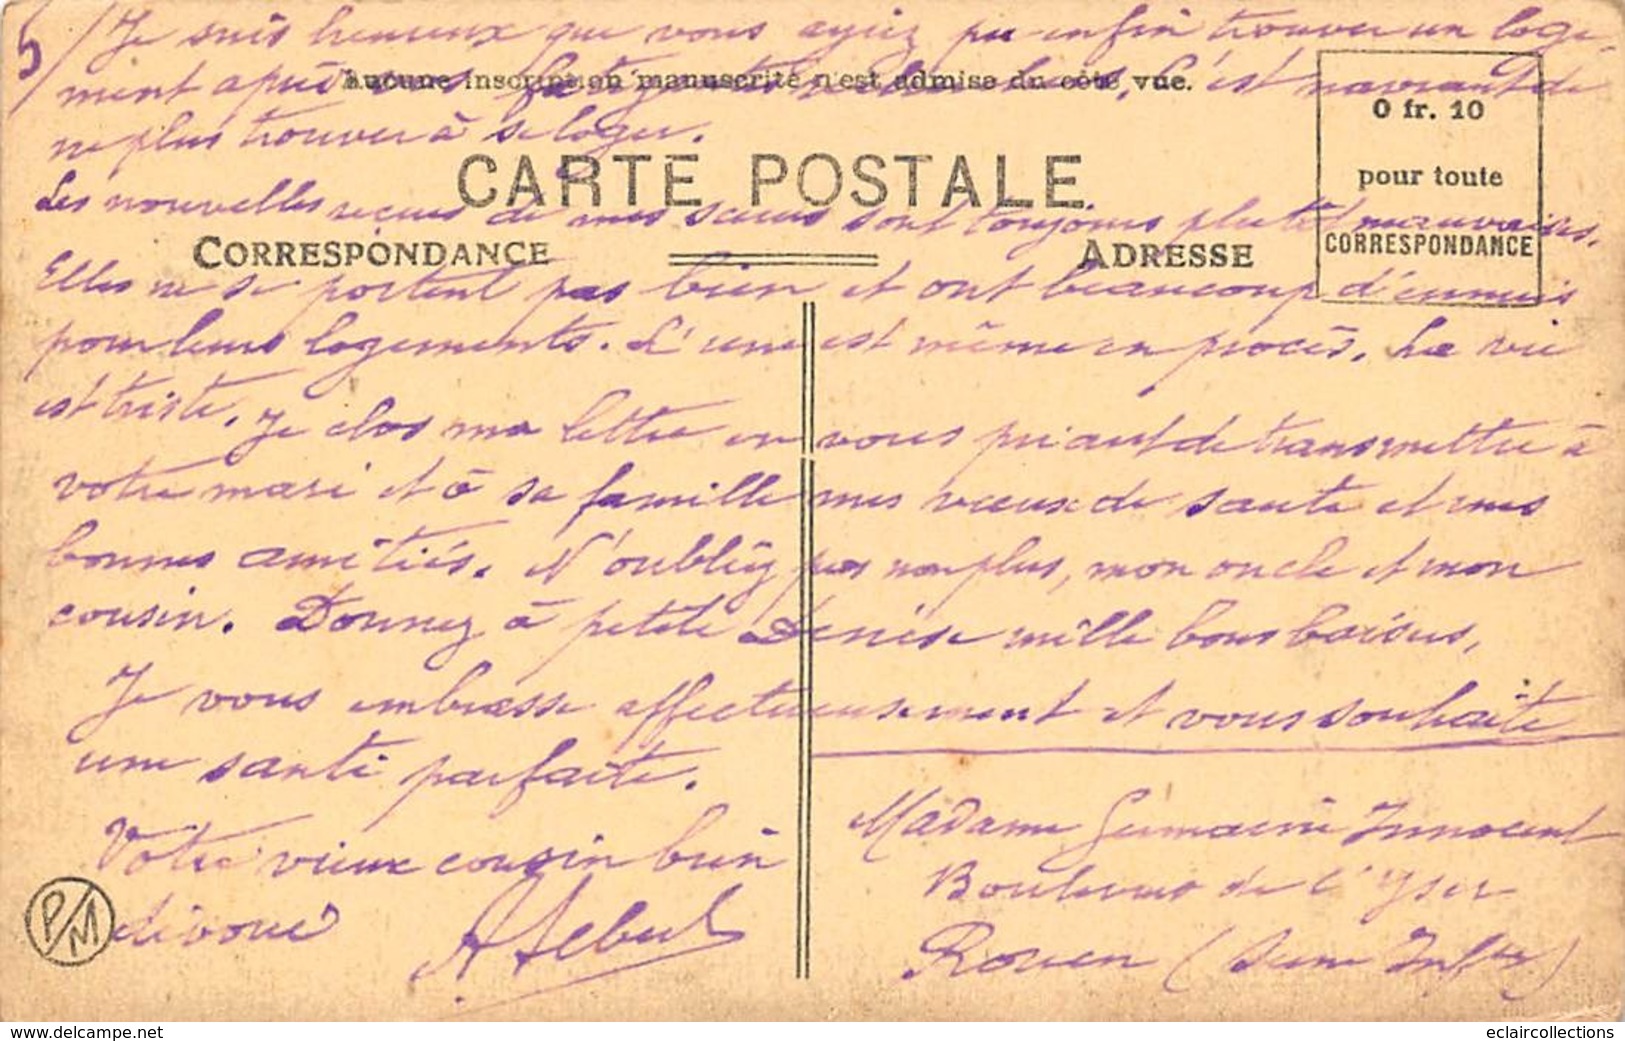 5/ Je suis heureux que vous ayiez pu enfin trouver un loge-
ment après vos C'est navrant de
Aucune inscription manuscrite n'est admise du côté vue.
0 fr. 10
pour toute
CORRESPONDANCE
ne plus trouver à se loger.
CARTE POSTALE
Les nouvelles reçues de mes sœurs sont toujours plutôt mauvaises.
CORRESPONDANCE
ADRESSE
Elles ne se portent pas bien et ont beaucoup d'ennuis
pour leurs logements. L'une est même en procès. La vie
est triste. Je clos ma lettre en vous priant de transmettre à
votre mari et à sa famille mes vœux de santé et mes
bonnes amitiés. N'oubliez pas non plus, mon oncle et mon
cousin. Donnez à petite Denise mille bons baisers.
Je vous embrasse affectueusement et vous souhaite
une santé parfaite.
Votre vieux cousin bien
dévoué
Madame Germaine Innocent
Boulevard de l'Yser
Rouen (Seine Infre)
P/M
www.delcampe.net
eclaircollections